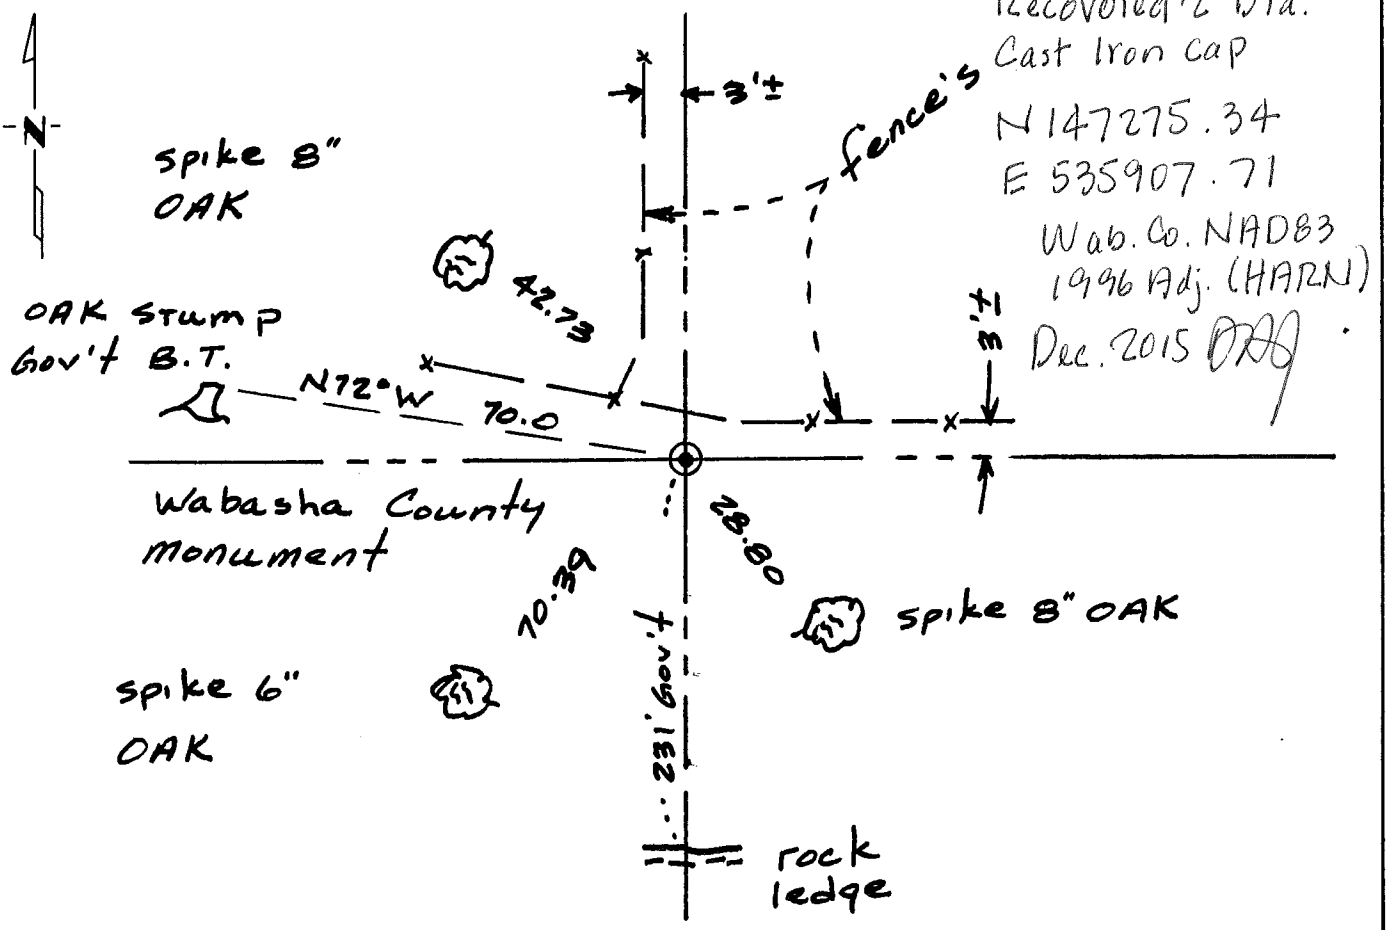 Recovered 2" Dia.
Cast Iron Cap
N 147275.34
E 535907.71
Wab. Co. NAD83
1996 Adj. (HARN)
Dec. 2015
N
spike 8"
OAK
3'±
fence's
42.73
OAK Stump
Gov't B.T.
N72°W
70.0
3'±
Wabasha County
monument
28.80
70.39
spike 8" OAK
231' Gov't
spike 6"
OAK
rock
ledge